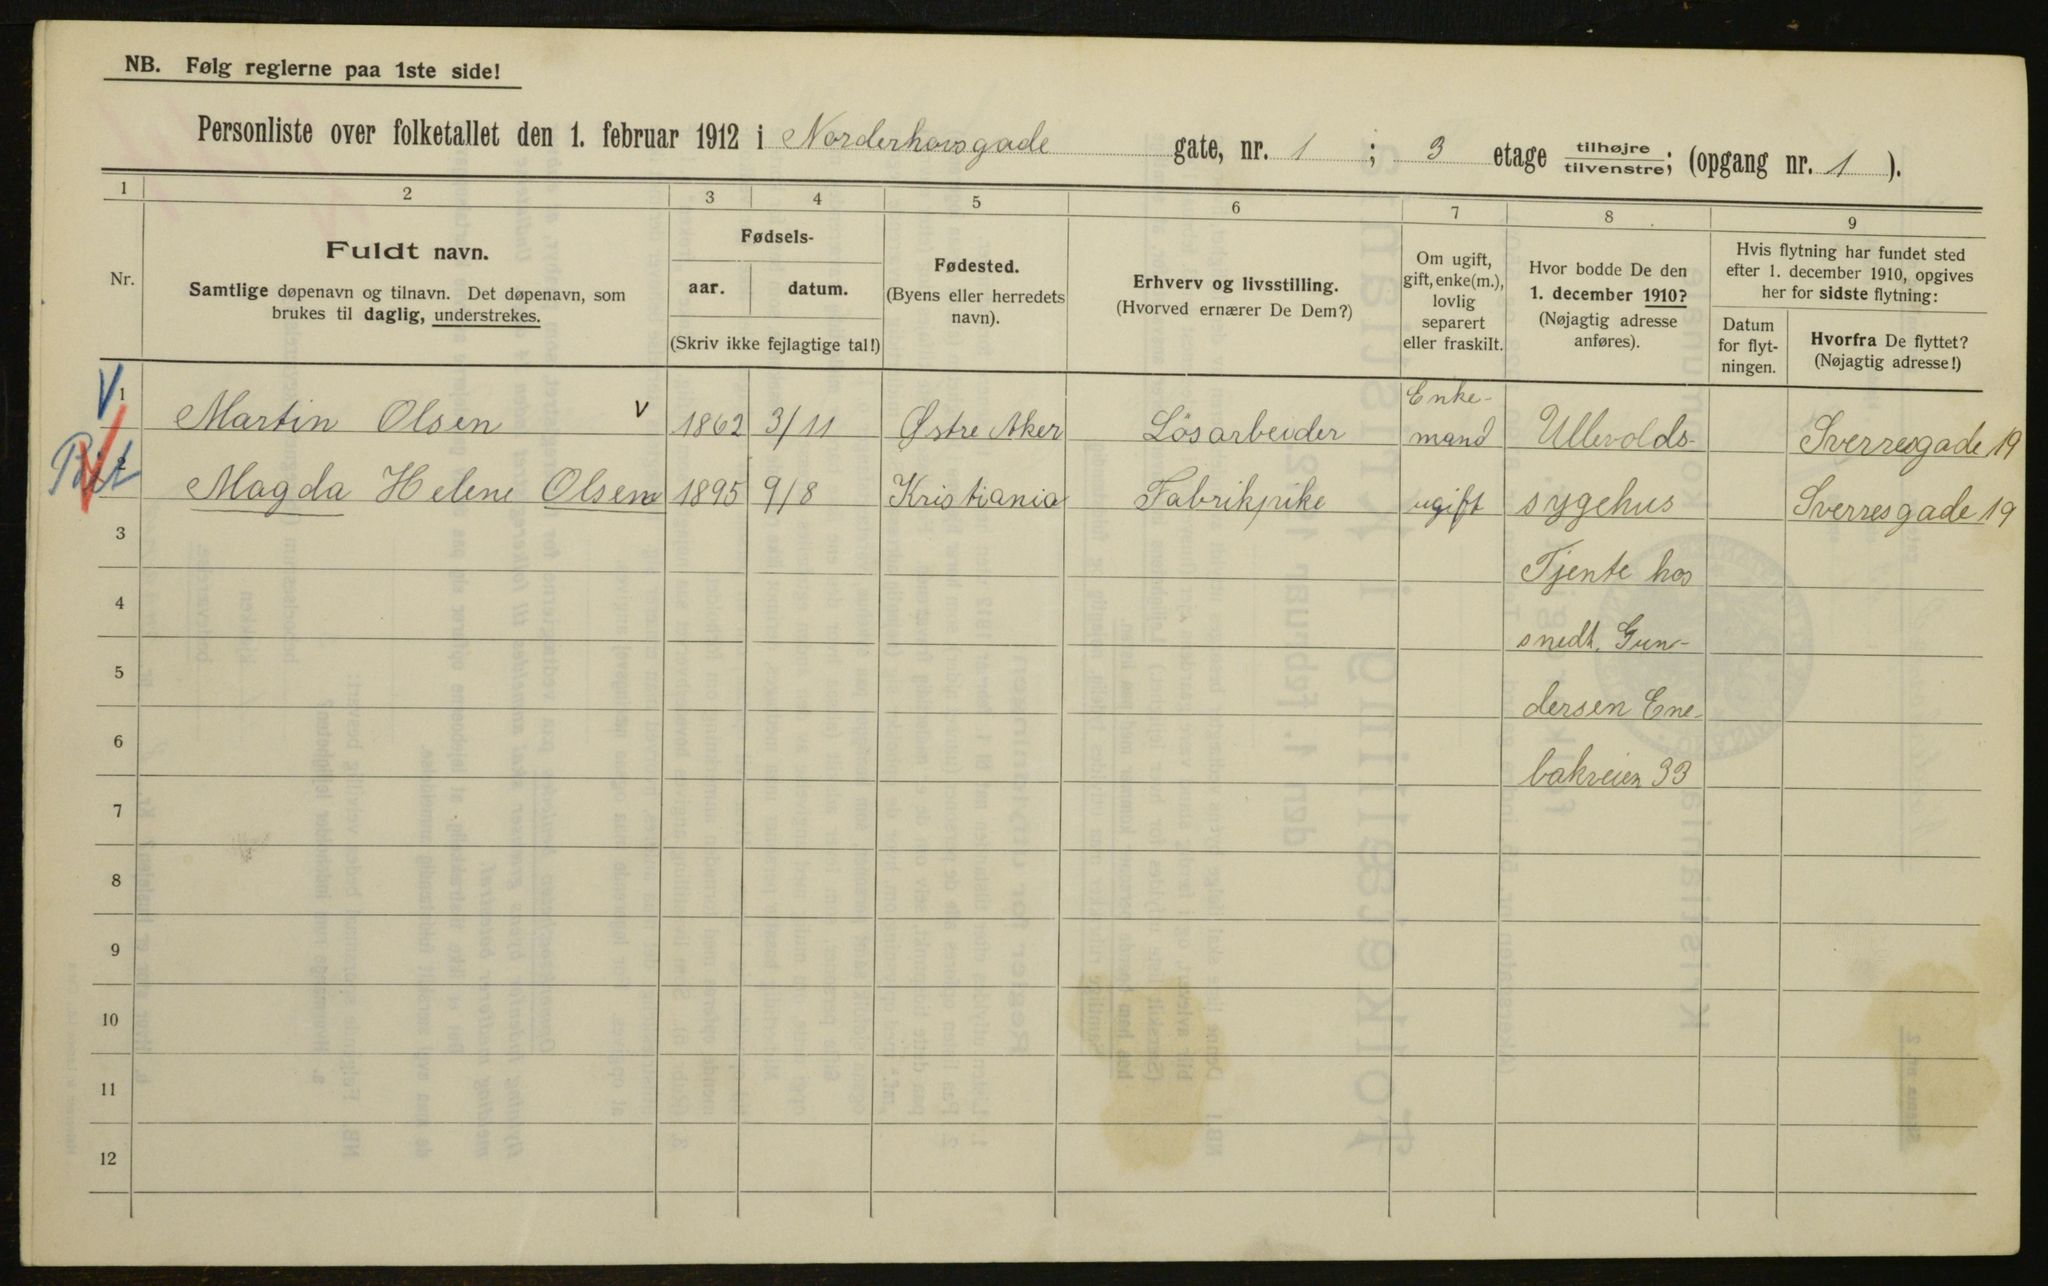 NB. Følg reglerne paa 1ste side!
Personliste over folketallet den 1. februar 1912 i Norderhovsgade gate, nr. 1; 3 etage tilhøjre/tilvenstre; (opgang nr. 1).
1 2 3 4 5 6 7 8 9
Nr.
Fuldt navn.
Samtlige døpenavn og tilnavn. Det døpenavn, som
brukes til daglig, understrekes.
Fødsels-
aar. datum.
(Skriv ikke fejlagtige tal!)
Fødested.
(Byens eller herredets
navn).
Erhverv og livsstilling.
(Hvorved ernærer De Dem?)
Om ugift,
gift, enke(m.),
lovlig
separert
eller fraskilt.
Hvor bodde De den
1. december 1910?
(Nøjagtig adresse
anføres).
Hvis flytning har fundet sted
efter 1. december 1910, opgives
her for sidste flytning:
Datum
for flyt-
ningen.
Hvorfra De flyttet?
(Nøjagtig adresse!)
1 Martin Olsen v 1862 3/11 Østre Aker Lösarbeider Enke-
mand Ullevolds- Sverresgade 19
2 Magda Helene Olsen 1895 9/8 Kristiania Fabrikpike ugift sygehus Sverresgade 19
3 Tjente hos
4 snedk. Gun-
5 dersen Ene-
6 bakveien 33
7
8
9
10
11
12